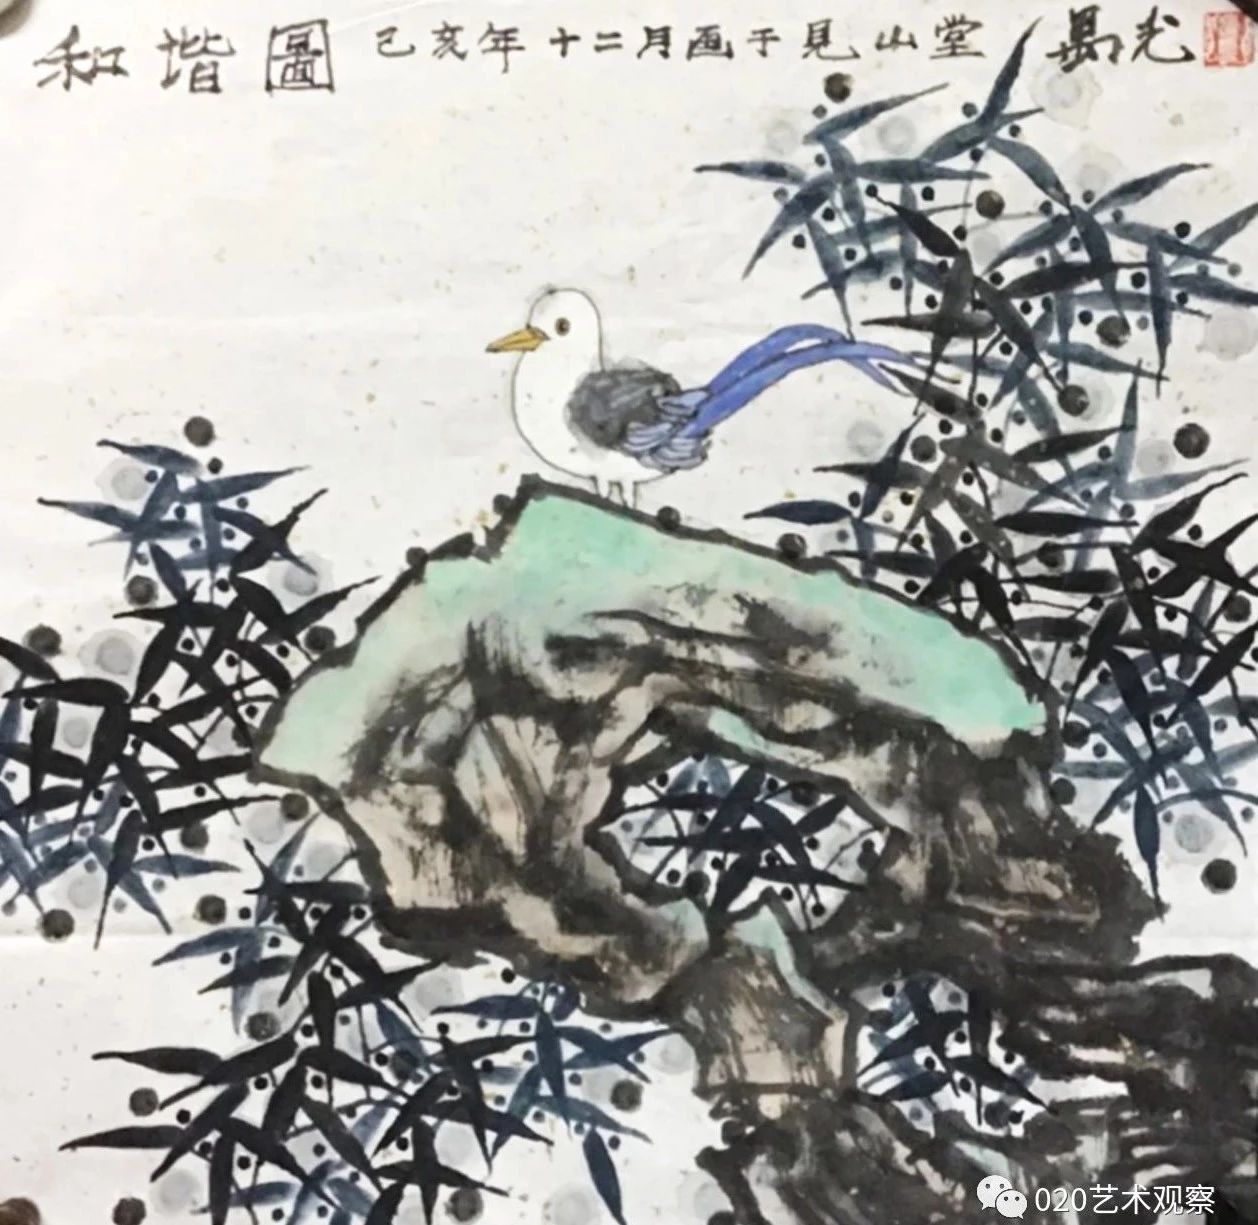 和谐圖 己亥年十二月画于見山堂 禺光
020艺术观察